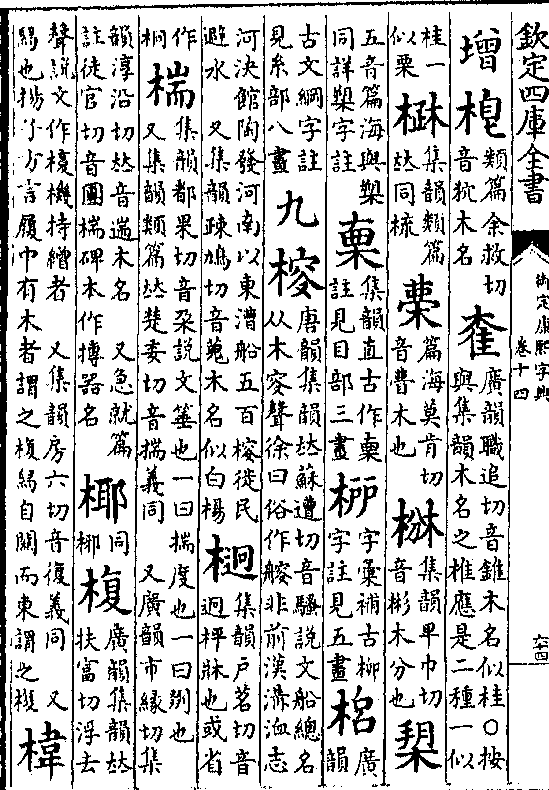 欽定四庫全書
御定康熙字典
卷十四
六十四
增
梍
類篇余救切
音狖木名
廣韻職追切音錐木名似桂○按
與集韻木名之椎應是二種一似
桂一
似栗
集韻類篇
𠀤同梳
篇海莫肯切
音瞢木也
集韻卑巾切
音彬木分也
五音篇海與槼
同詳槼字註
集韻直古作
註見目部三畫
桺
字彙補古柳
字註見五畫
廣
韻
古文綱字註
見糸部八畫
九
㮴
唐韻集韻𠀤蘇遭切音騷說文船總名
从木叜聲徐曰俗作艘非前漢溝洫志
河決館陶發河南以東漕船五百㮴徙民
避水 又集韻疎鳩切音蒐木名似白楊
集韻戶茗切音
迥枰牀也或省
作
椯
集韻都果切音朶說文箠也一曰揣度也一曰剟也
又集韻類篇𠀤楚委切音揣義同 又廣韻市緣切集
韻淳沿切𠀤音遄木名 又急就篇
註徒官切音團椯碑本作槫器名
椰
同
梛
椱
廣韻集韻𠀤
扶富切浮去
聲說文作椱機持繒者 又集韻房六切音復義同 又
舄也揚子方言履中有木者謂之椱舄自關而東謂之椱
椲